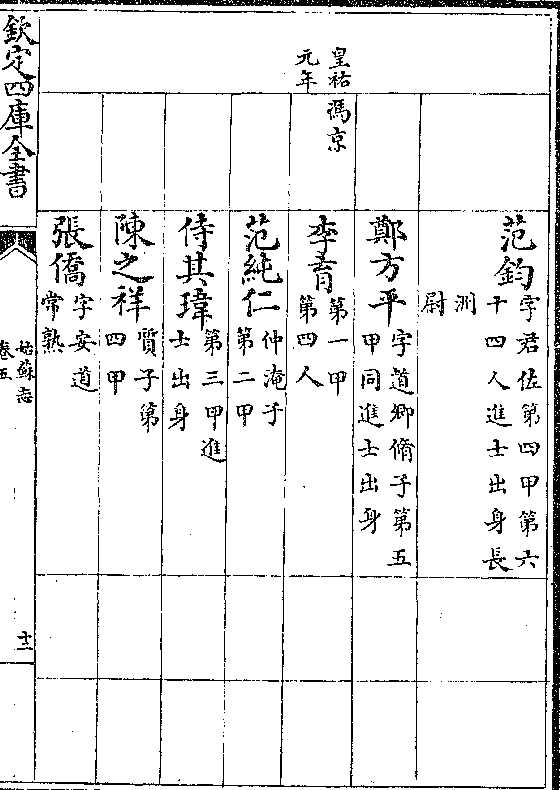 范鈞字君佐第四甲第六
十四人進士出身長
洲
尉
鄭方平字道卿脩子第五
甲同進士出身
皇祐
元年
馮京
李育第一甲
第四人
范純仁仲淹子
第二甲
侍其瑋第三甲進
士出身
陳之祥質子第
四甲
張僑字安道
常熟
欽定四庫全書
姑蘇志
卷五
十三